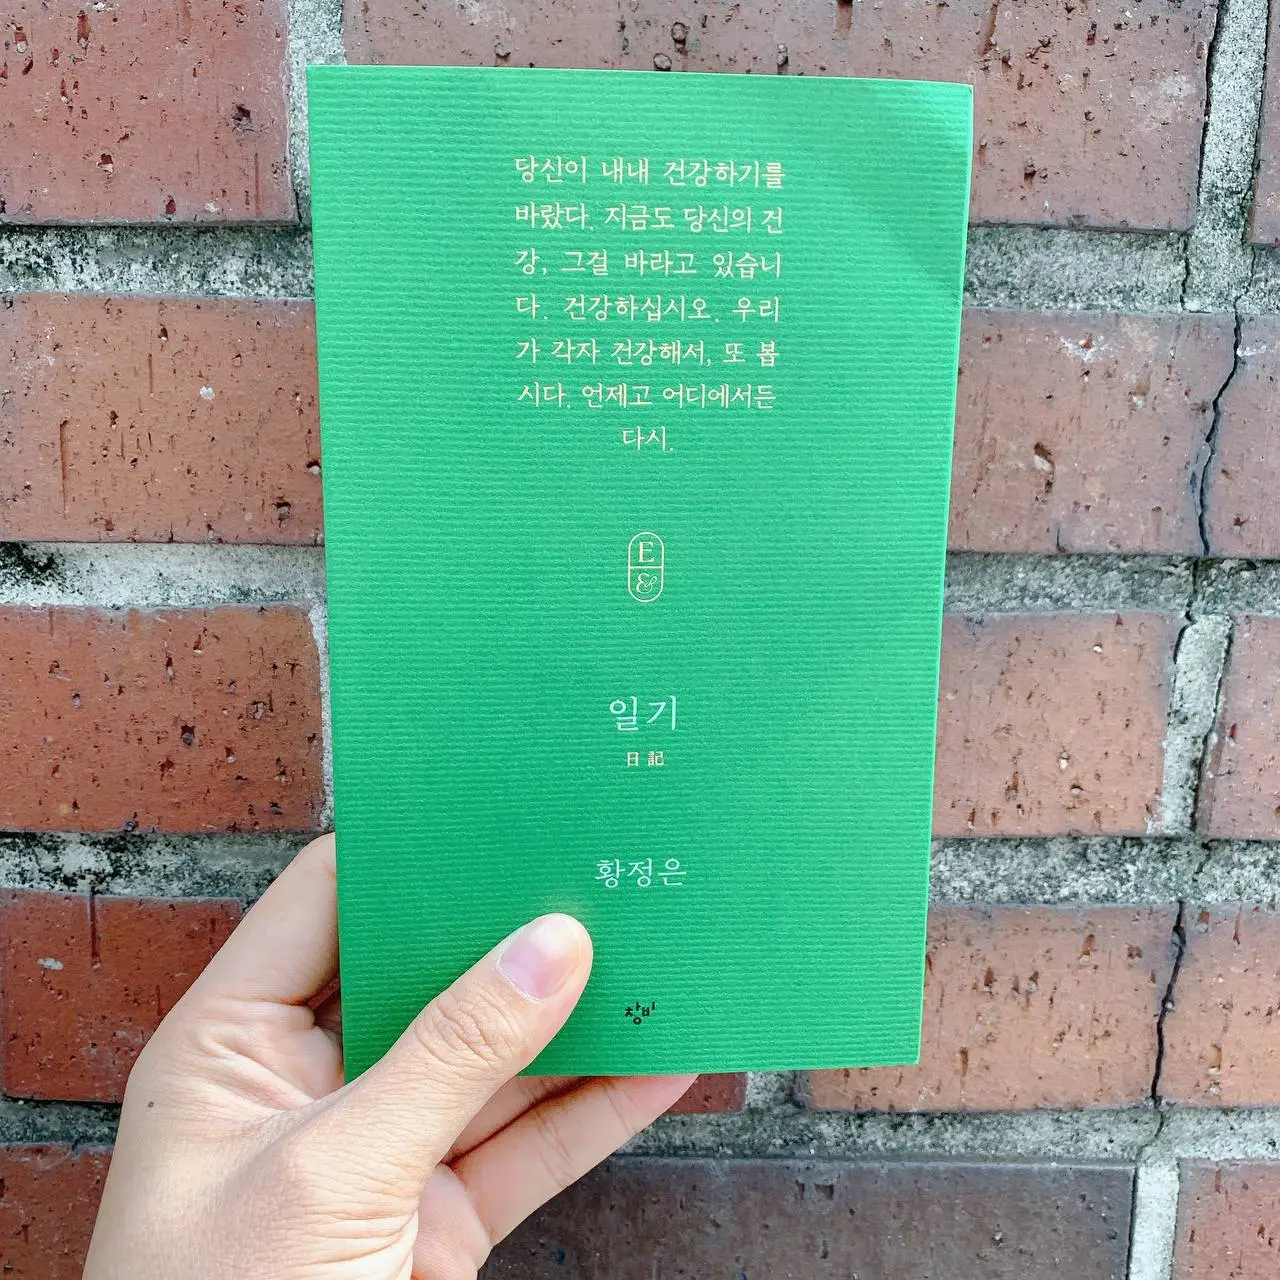 당신이 내내 건강하기를
바랐다. 지금도 당신의 건
강, 그걸 바라고 있습니
다. 건강하십시오. 우리
가 각자 건강해서, 또 봅
시다. 언제고 어디에서든
다시.
E
&
일기
日記
황정은
창비